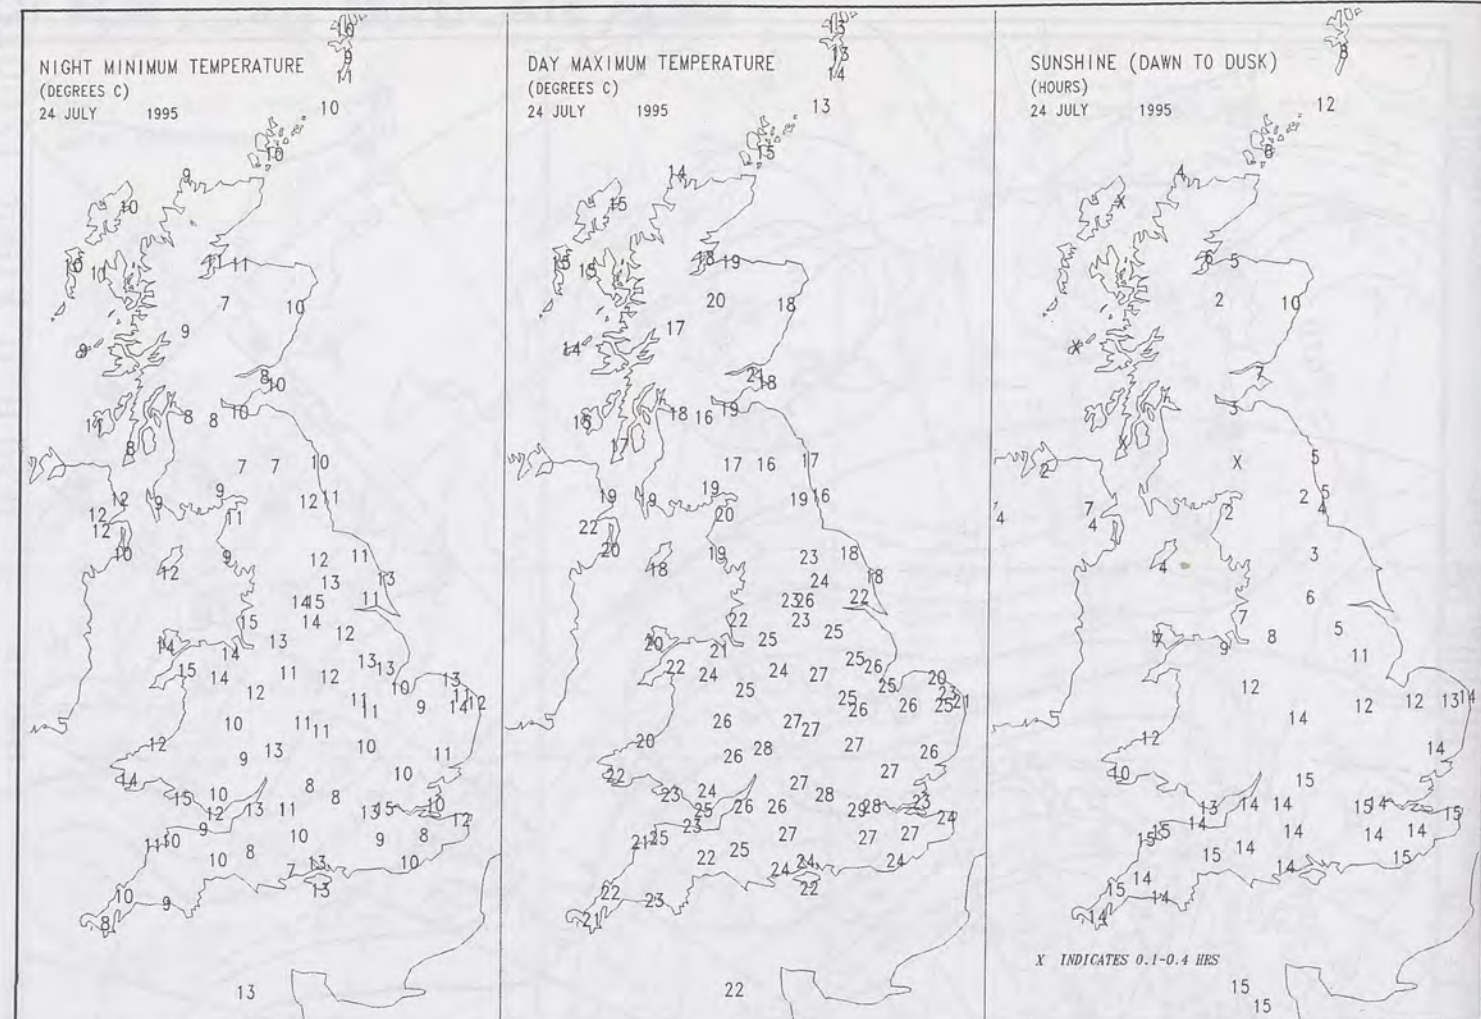 NIGHT MINIMUM TEMPERATURE
(DEGREES C)
24 JULY 1995
10
9
11
10
10
9
10
10 10 11 11
7 10
9
9
8 10
11 8 8 10
8
7 7 10
9
12 9 12 11
12 11
12
10 9 12 11
12 13 13
14 15 11
15 14
14 13 12
14
15 14 11 12 13 13 13
12 10
11 11 9 11 14 12
10 11 11
12 9 13 10 11
14 10
15 10 8 8
12 13 11 13 15 10
9 12
11 10 10 9 8
10 8 7 13 10
10 13
9
8
13
DAY MAXIMUM TEMPERATURE
(DEGREES C)
24 JULY 1995
13
13
14
13
15
14
15
15 15 18 19
20 18
17
14
21 18
16 18 16 19
17
17 16 17
19
19 19 19 16
22 20
20 19 23 18
18 24 18
23 26 22
22 23
20 25 25
21
22 24 24 27 25 26 20
25 25 23
25 26 26 25 21
26 27 27
20 26 28 27 26
22 27 27
23 24 28
25 26 26 29 28 23
23 24
21 25 27 27 27
22 25 24 24 24
22 22
23
21
22
SUNSHINE (DAWN TO DUSK)
(HOURS)
24 JULY 1995
8
12
6
4
X
6 5
2 10
X
7
3
X
2 X 5
2 5
7 4
4 4 2
4 3
6
7 7 8 5
9 11
12 12 12 13 14
14
12 14
10 15
13 14 14 15 14 15
14
15 15 14 14 14
15 14 14 15
14
15 14
14
X INDICATES 0.1-0.4 HRS
15
15